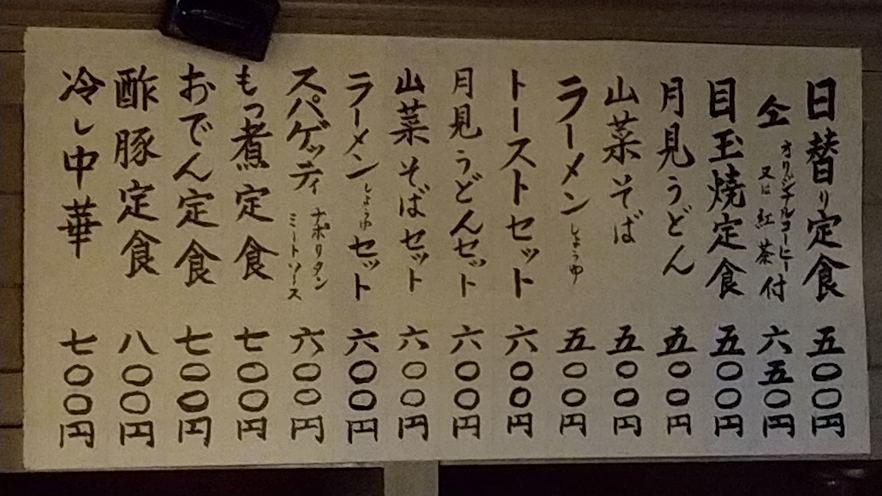 日替り定食 五〇〇円
仝 オリジナルコーヒー又は紅茶付 六五〇円
目玉焼定食 五〇〇円
月見うどん 五〇〇円
山菜そば 五〇〇円
ラーメン しょうゆ 五〇〇円
トーストセット 六〇〇円
月見うどんセット 六〇〇円
山菜そばセット 六〇〇円
ラーメン しょうゆ セット 六〇〇円
スパゲッティ ナポリタン ミートソース 六〇〇円
もつ煮定食 七〇〇円
おでん定食 七〇〇円
酢豚定食 八〇〇円
冷し中華 七〇〇円